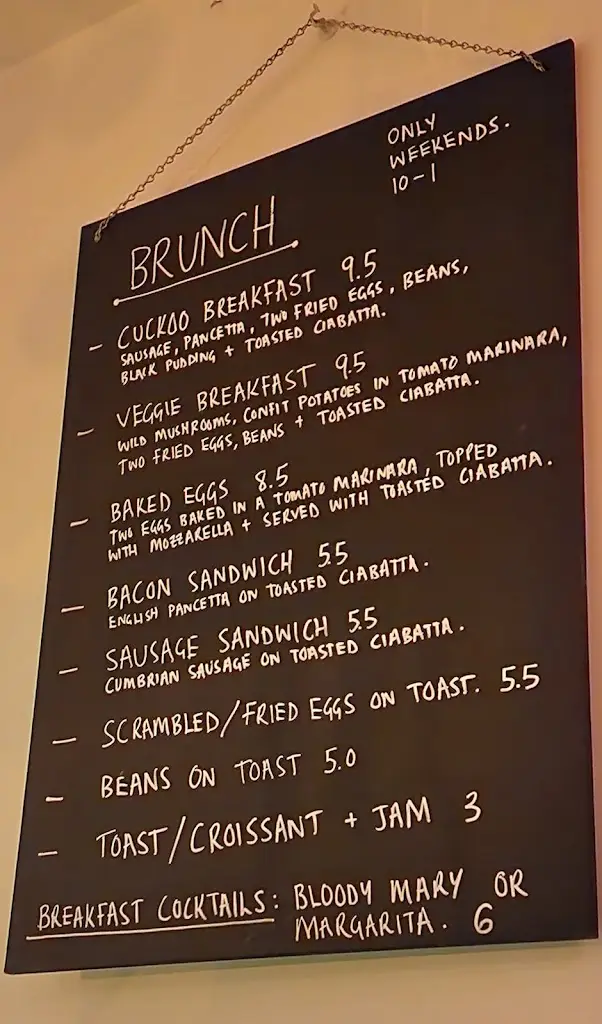 ONLY
WEEKENDS.
10-1
BRUNCH.
- CUCKOO BREAKFAST 9.5
SAUSAGE, PANCETTA, TWO FRIED EGGS, BEANS,
BLACK PUDDING + TOASTED CIABATTA.
- VEGGIE BREAKFAST 9.5
WILD MUSHROOMS, CONFIT POTATOES IN TOMATO MARINARA,
TWO FRIED EGGS, BEANS + TOASTED CIABATTA.
- BAKED EGGS 8.5
TWO EGGS BAKED IN A TOMATO MARINARA, TOPPED
WITH MOZZARELLA + SERVED WITH TOASTED CIABATTA.
- BACON SANDWICH 5.5
ENGLISH PANCETTA ON TOASTED CIABATTA.
- SAUSAGE SANDWICH 5.5
CUMBRIAN SAUSAGE ON TOASTED CIABATTA.
- SCRAMBLED/FRIED EGGS ON TOAST. 5.5
- BEANS ON TOAST 5.0
- TOAST/CROISSANT + JAM 3
BREAKFAST COCKTAILS: BLOODY MARY OR
MARGARITA. 6